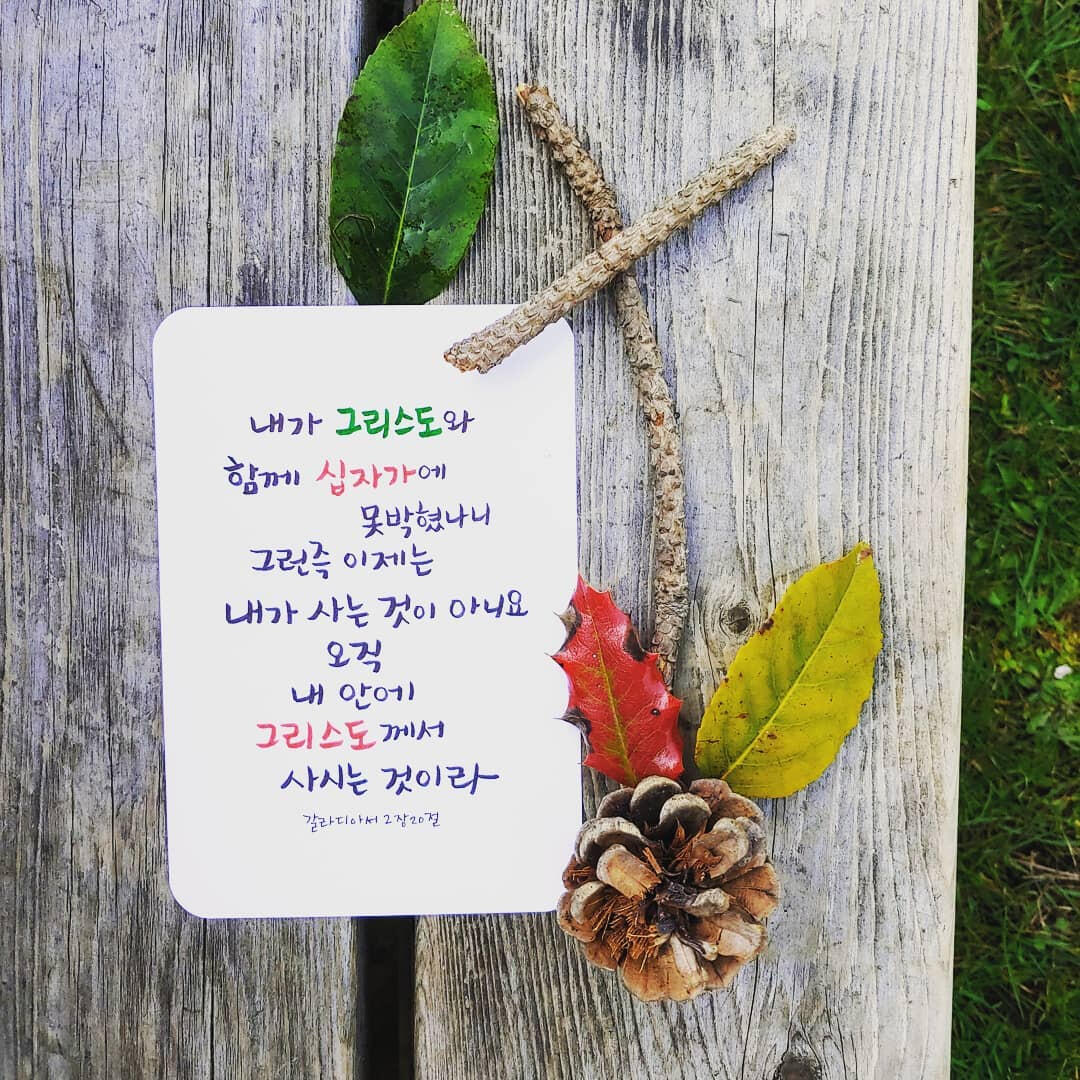 내가 그리스도와
함께 십자가에
못박혔나니
그런즉 이제는
내가 사는 것이 아니요
오직
내 안에
그리스도께서
사시는 것이라
갈라디아서 2장20절